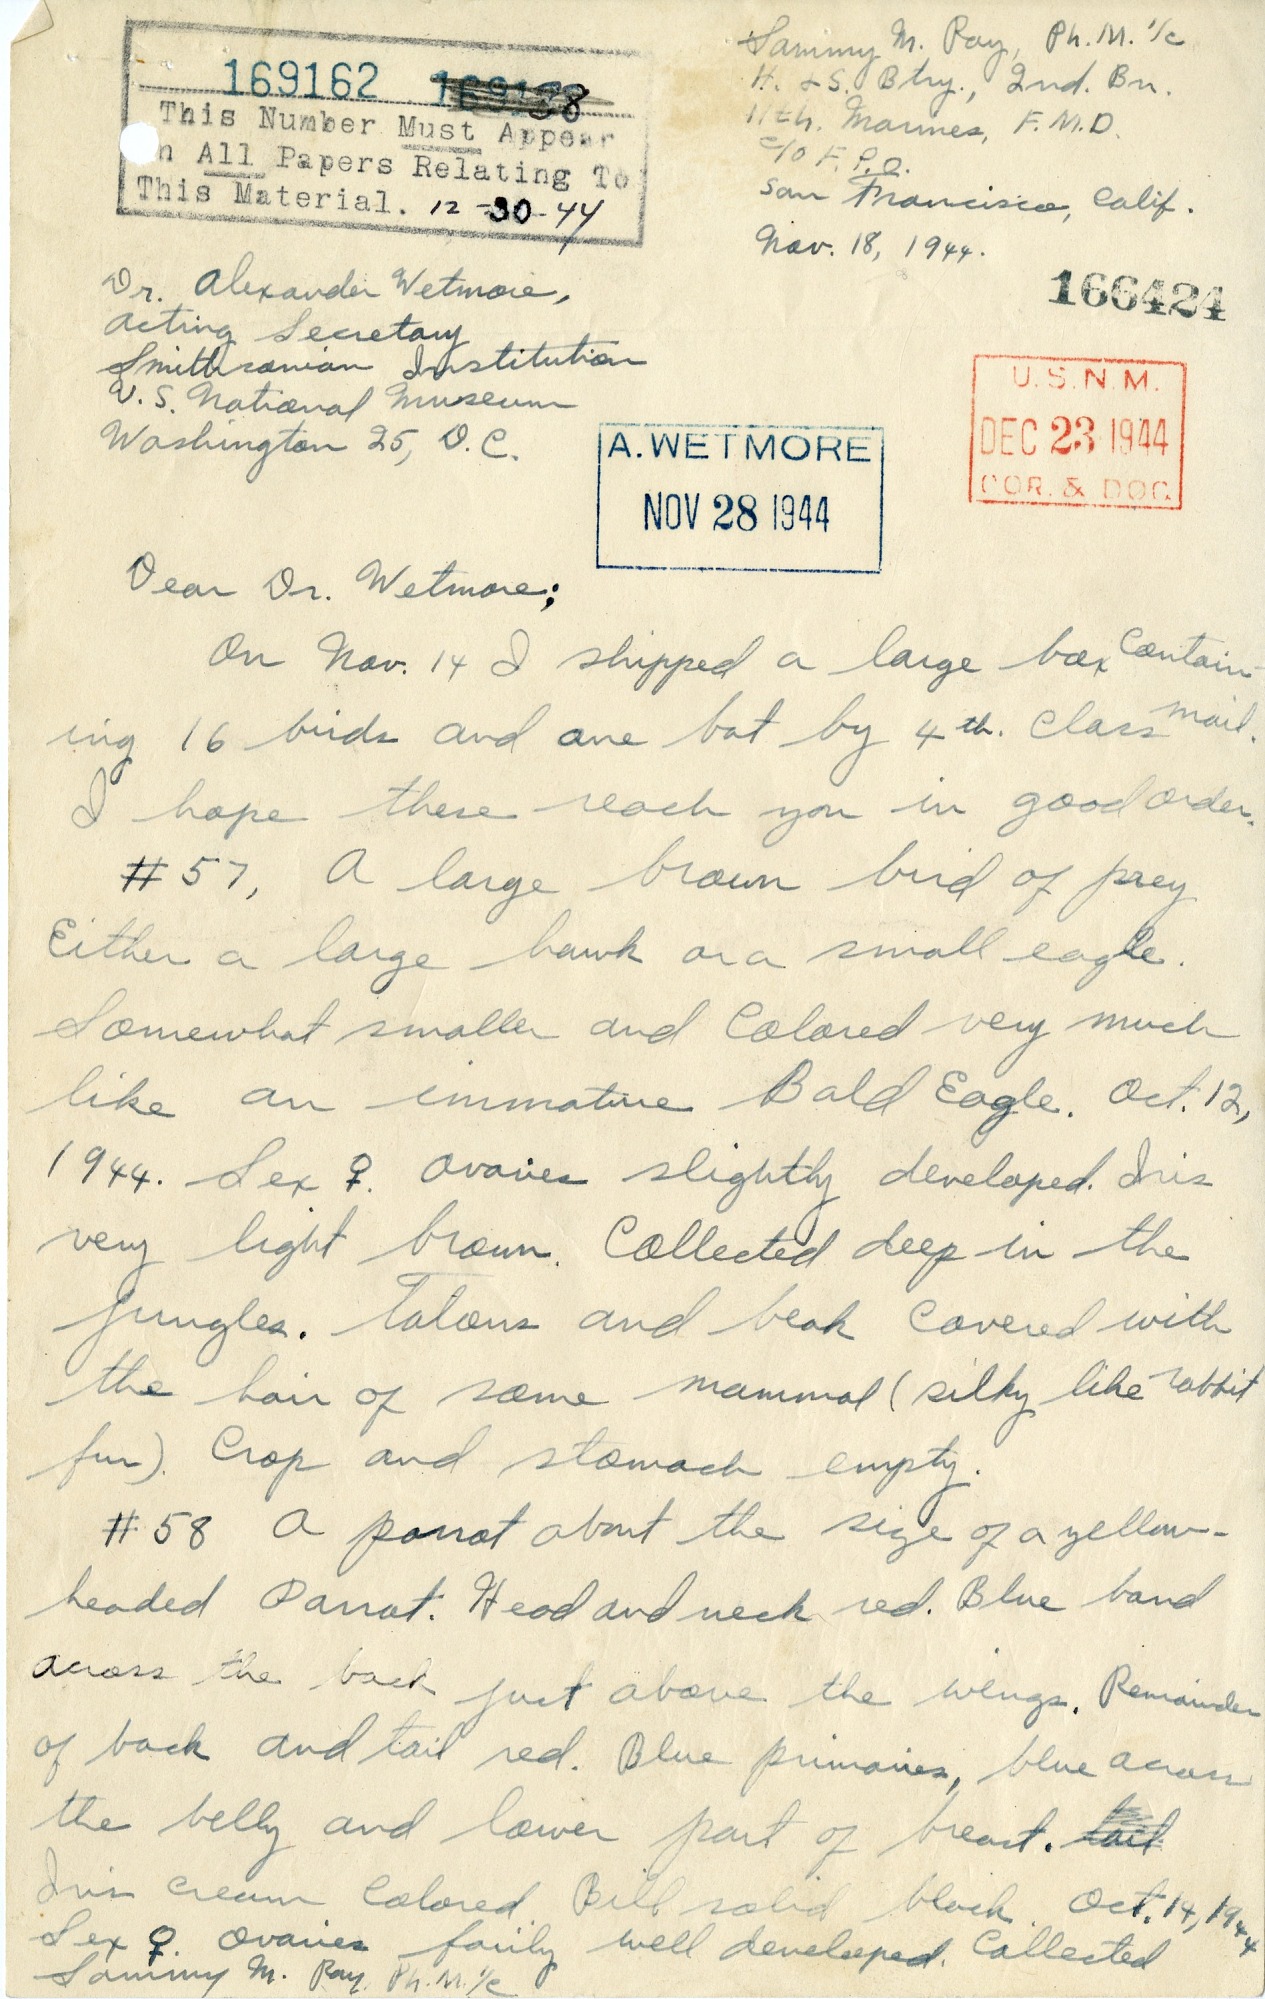 169162 169138
This Number Must Appear
n All Papers Relating To
This Material. 12-30-44
Sammy M. Ray, Ph.M. 1/c
H. & S. Btry., 2nd. Bn.
11th. Marines, F.M.D.
c/o F.P.O.
San Francisco, Calif.
Nov. 18, 1944.
166424
Dr. Alexander Wetmore,
Acting Secretary
Smithsonian Institution
U.S. National Museum
Washington 25, D.C.
A. WETMORE
NOV 28 1944
U.S.N.M.
DEC 23 1944
COR. & DOC.
Dear Dr. Wetmore;
On Nov. 14 I shipped a large box contain-
ing 16 birds and one bat by 4th. class mail.
I hope these reach you in good order.
#57, A large brown bird of prey
Either a large hawk or a small eagle.
Somewhat smaller and colored very much
like an immature Bald Eagle. Oct. 12,
1944. Sex ♀. Ovaries slightly developed. Iris
very light brown. Collected deep in the
jungles. Talons and beak covered with
the hair of some mammal (silky like rabbit
fur). Crop and stomach empty.
#58 A parrot about the size of a yellow-
headed Parrot. Head and neck red. Blue band
across the back just above the wings. Remainder
of back and tail red. Blue primaries, blue across
the belly and lower part of breast. tail
Iris cream colored Bill solid black. Oct. 14, 1944
Sex ♀. Ovaries fairly well developed. Collected
Sammy M. Ray. Ph.M. 1/c